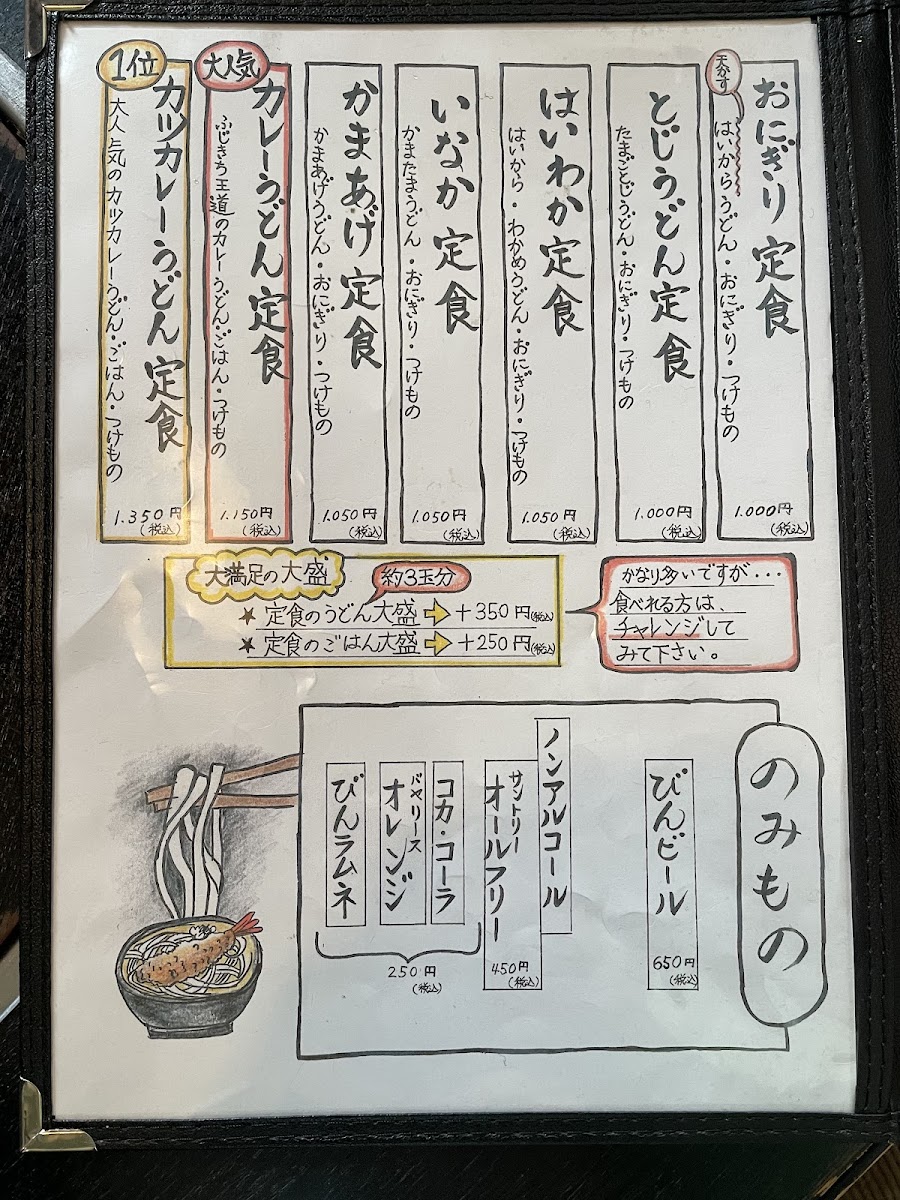 おにぎり定食
天かす
はいからうどん・おにぎり・つけもの
1.000円
(税込)
とじうどん定食
たまごとじうどん・おにぎり・つけもの
1.000円
(税込)
はいわか定食
はいから・わかめうどん・おにぎり・つけもの
1.050円
(税込)
いなか定食
かまたまうどん・おにぎり・つけもの
1.050円
(税込)
かまあげ定食
かまあげうどん・おにぎり・つけもの
1.050円
(税込)
大人気
カレーうどん定食
ふじきち王道のカレーうどん・ごはん・つけもの
1.150円
(税込)
1位
カツカレーうどん定食
大人気のカツカレーうどん・ごはん・つけもの
1.350円
(税込)
大満足の大盛
約3玉分
★定食のうどん大盛➡+350円(税込)
★定食のごはん大盛➡+250円(税込)
かなり多いですが・・・
食べれる方は、
チャレンジして
みて下さい。
のみもの
びんビール
650円
(税込)
ノンアルコール
サントリー
オールフリー
450円
(税込)
コカ・コーラ
バヤリース
オレンジ
びんラムネ
250円
(税込)